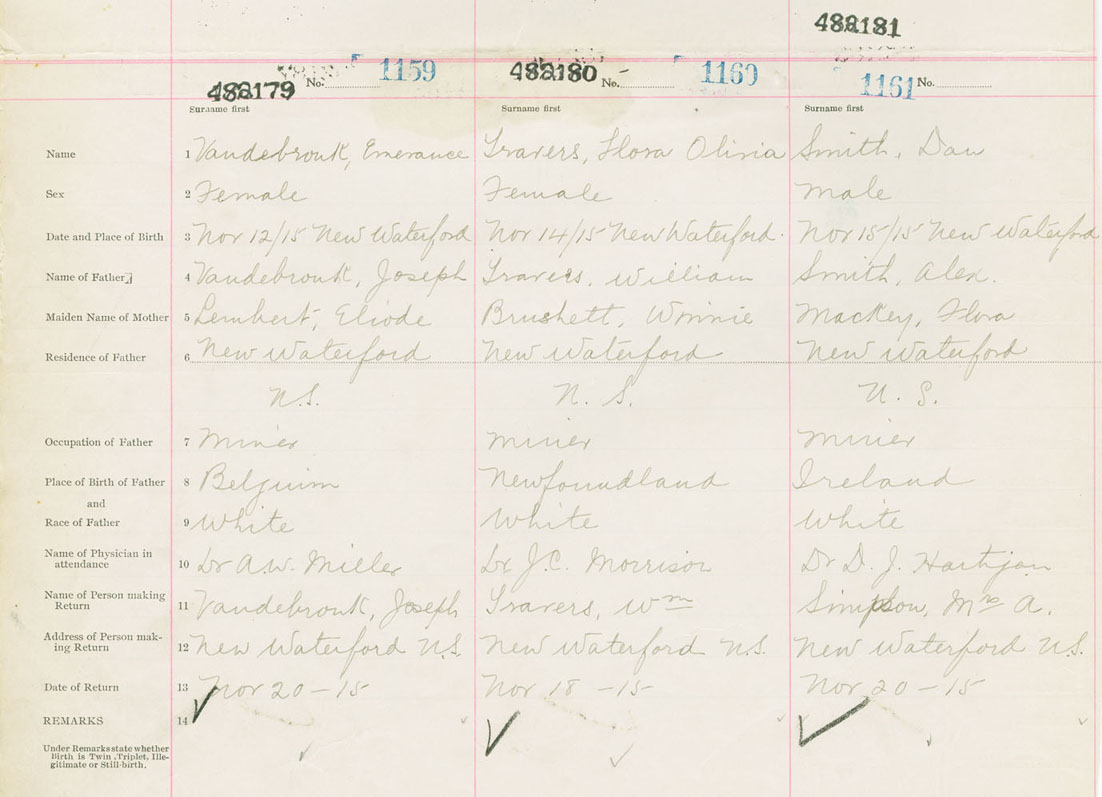 482181
482179 No. 1159 482180 No. 1160 1161 No.
Surname first Surname first Surname first
Name 1 Vandebrouk, Emerance Travers, Flora Olivia Smith, Dan
Sex 2 Female Female Male
Date and Place of Birth 3 Nov 12/15 New Waterford Nov 14/15 New Waterford. Nov 15/15 New Waterford
Name of Father 4 Vandebrouk, Joseph Travers, William Smith, Alex.
Maiden Name of Mother 5 Lembert, Eliode Brushett, Winnie Mackey, Flora
Residence of Father 6 New Waterford New Waterford New Waterford
N.S. N. S. N. S.
Occupation of Father 7 Miner Miner Miner
Place of Birth of Father 8 Belgium Newfoundland Ireland
and
Race of Father 9 White White White
Name of Physician in
attendance 10 Dr A.W. Miller Dr J.C. Morrison Dr D. J.
Name of Person making
Return 11 Vandebrouk, Joseph Travers, Wm Simpson, Mrs A.
Address of Person mak-
ing Return 12 New Waterford N.S. New Waterford N.S. New Waterford N.S.
Date of Return 13 Nov 20-15 Nov 18-15 Nov 20-15
REMARKS 14
Under Remarks state whether
Birth is Twin, Triplet, Ille-
gitimate or Still-birth.